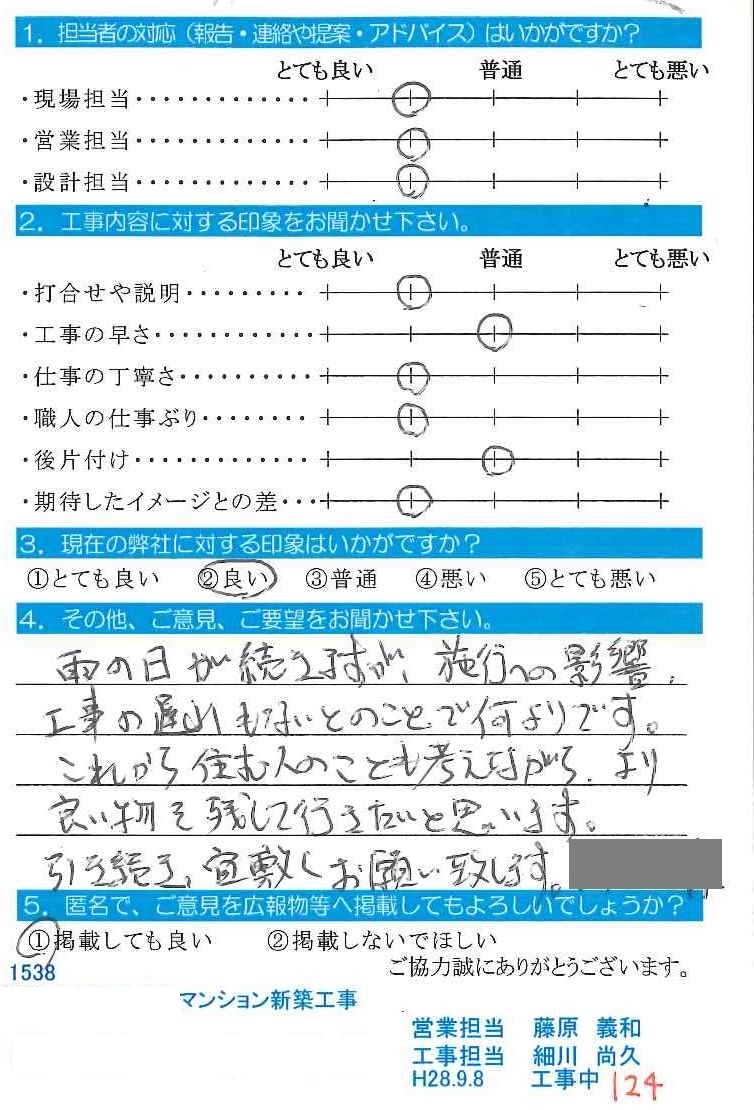 1. 担当者の対応（報告・連絡や提案・アドバイス）はいかがですか？
とても良い 普通 とても悪い
・現場担当・・・・・・・・・・・・・
・営業担当・・・・・・・・・・・・・
・設計担当・・・・・・・・・・・・・
2. 工事内容に対する印象をお聞かせ下さい。
とても良い 普通 とても悪い
・打合せや説明・・・・・・・・・
・工事の早さ・・・・・・・・・・・・
・仕事の丁寧さ・・・・・・・・・・
・職人の仕事ぶり・・・・・・・・
・後片付け・・・・・・・・・・・・・
・期待したイメージとの差・・・
3. 現在の弊社に対する印象はいかがですか？
①とても良い ②良い ③普通 ④悪い ⑤とても悪い
4. その他、ご意見、ご要望をお聞かせ下さい。
雨の日が続きますが、施行への影響、
工事の遅れもないとのことで何よりです。
これから住む人のことも考えながら、より
良い物を残して行きたいと思います。
引き続き、宜敷くお願い致します。
5. 匿名で、ご意見を広報物等へ掲載してもよろしいでしょうか？
①掲載しても良い ②掲載しないでほしい
ご協力誠にありがとうございます。
1538
マンション新築工事
営業担当 藤原 義和
工事担当 細川 尚久
H28.9.8 工事中 124